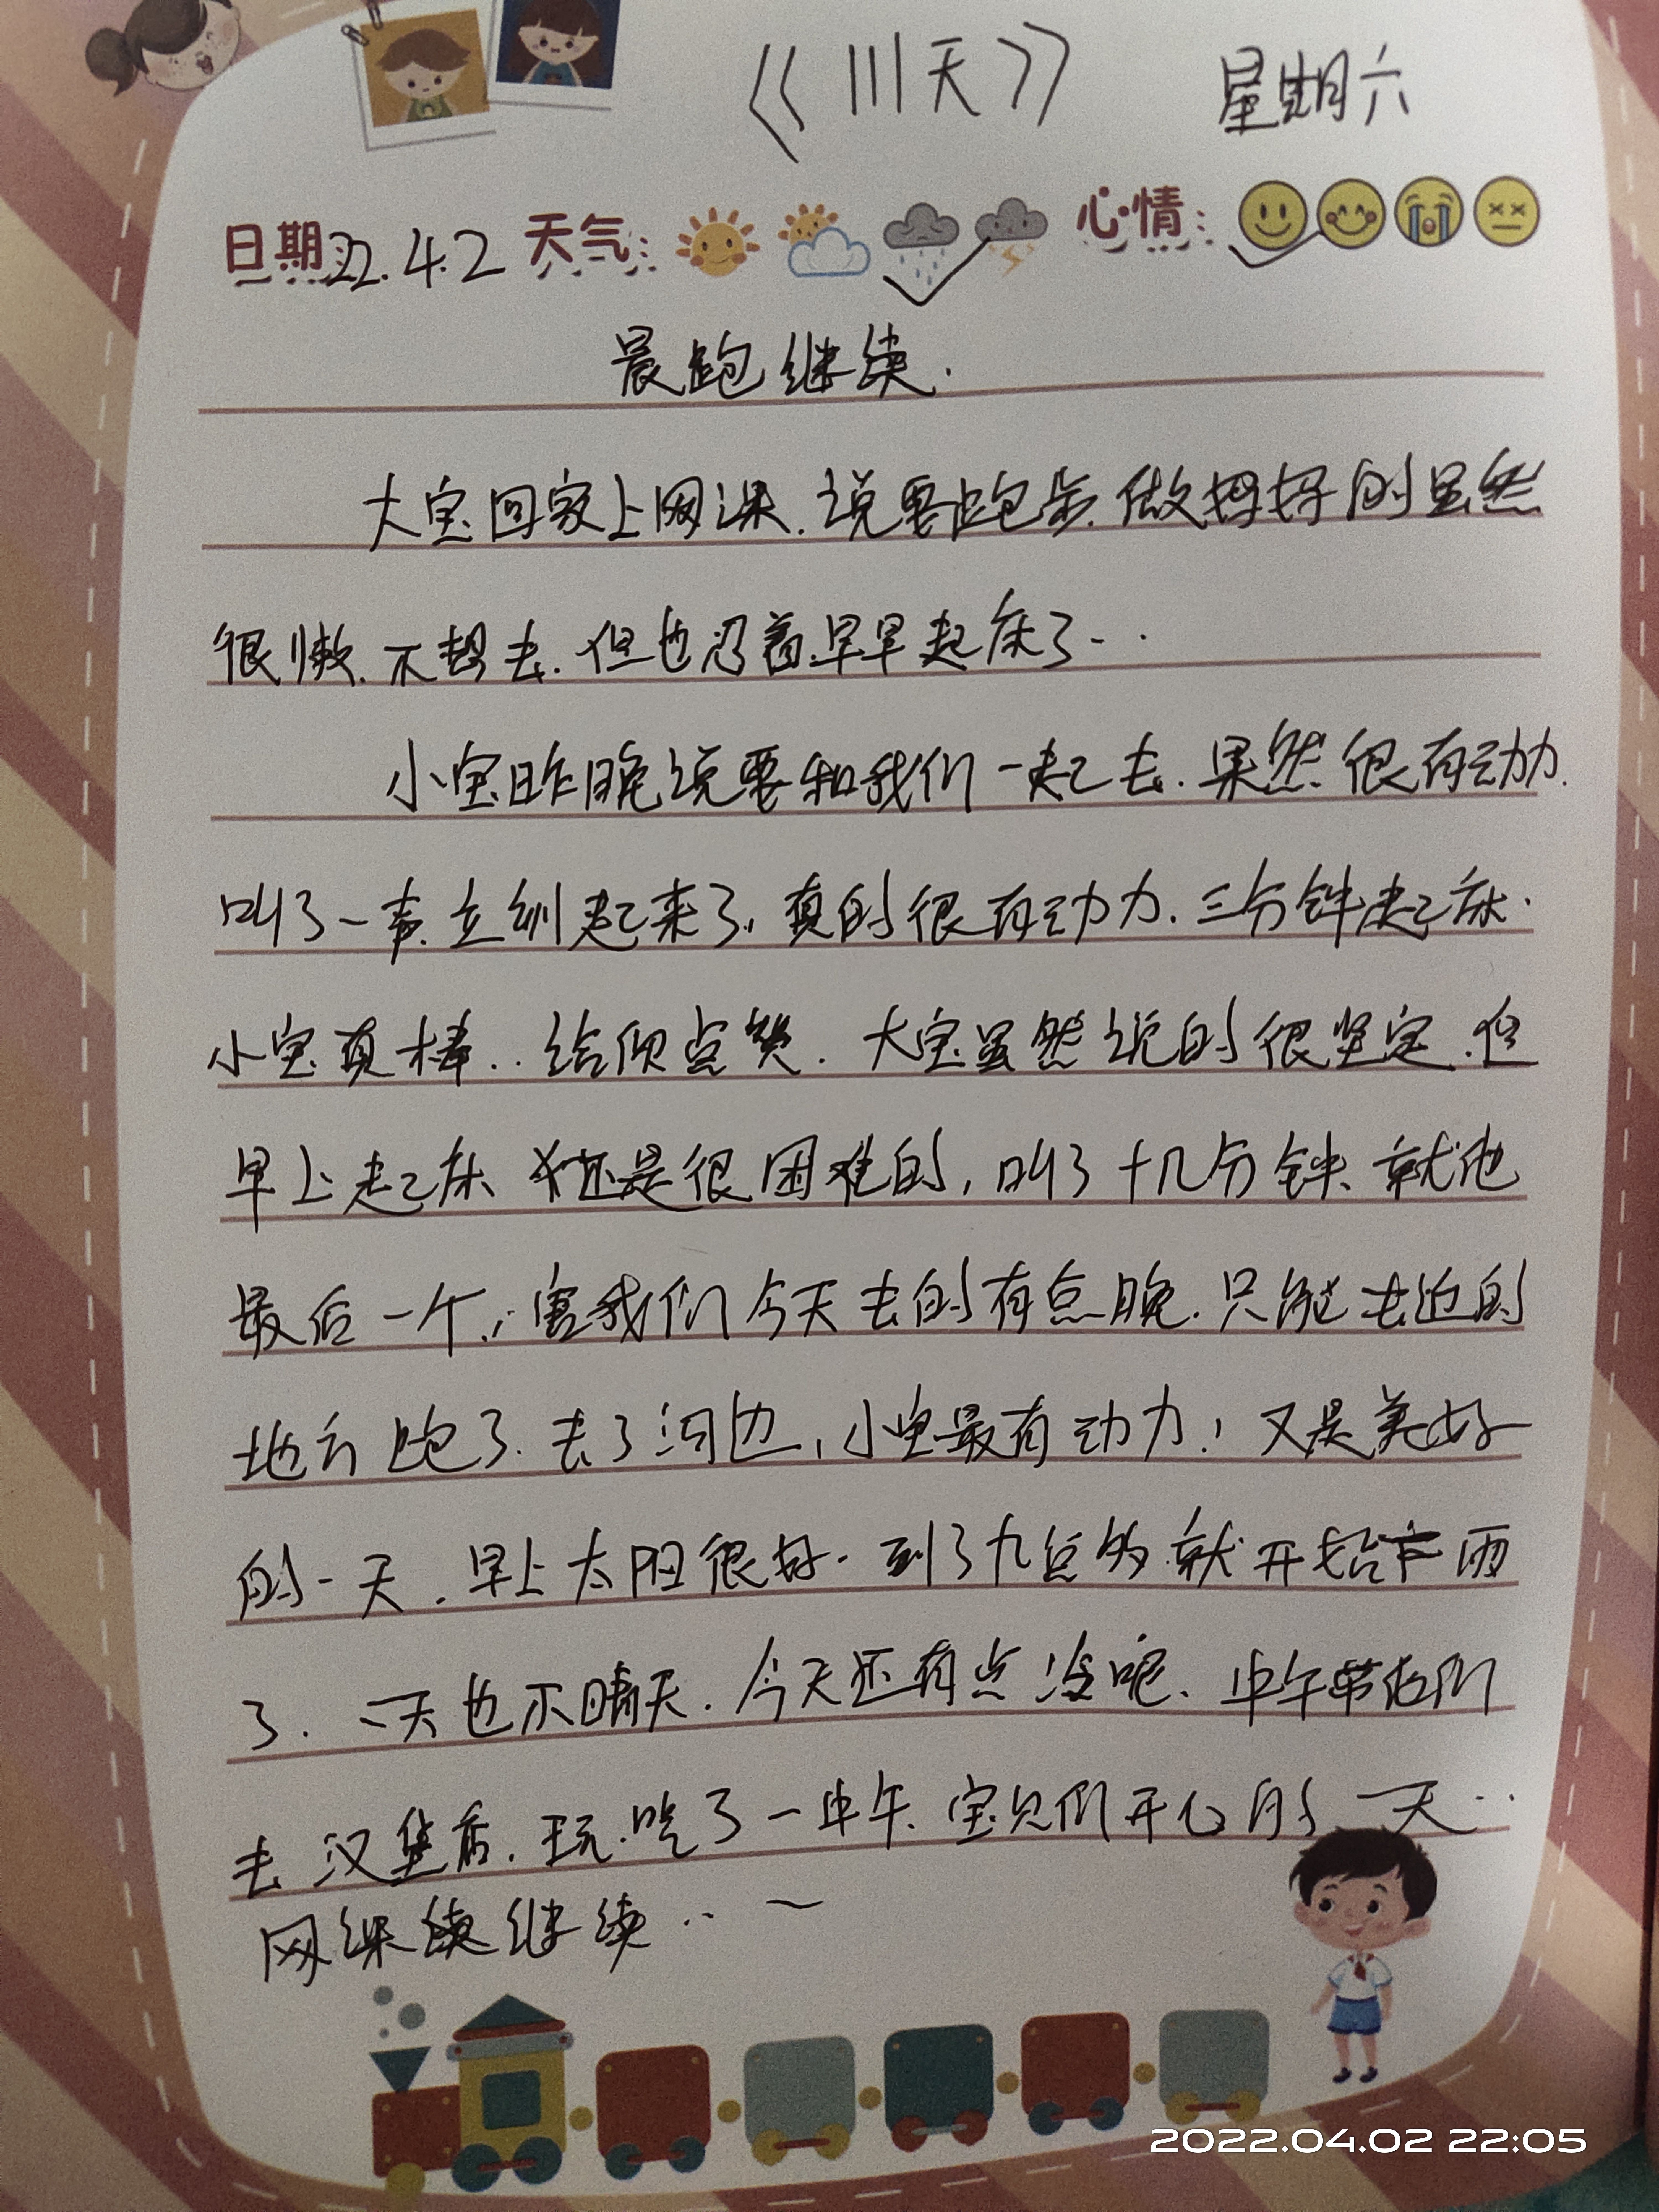 《111天》 星期六
日期:22.4.2 天气: 心情:
晨跑继续.
大宝回家上网课.说要跑步.做妈妈的虽然
很懒.不想去.但也忍着早早起床了...
小宝昨晚说要和我们一起去.果然很有动力.
叫了一声.立刻起来了,真的很有动力.三分钟起床.
小宝真棒..给你点赞.大宝虽然说的很坚定.但
早上起床 还是很困难的,叫了十几分钟、就他
最后一个,害我们今天去的有点晚.只能去近的
地方跑了.去了河边,小宝最有动力!又是美好
的一天.早上太阳很好.到了九点多就开始下雨
了.一天也不晴天.今天还有点冷呢、中午带他们
去汉堡店.玩.吃了一中午、宝贝们开心的一天..
网课续继续..~
2022.04.02 22:05